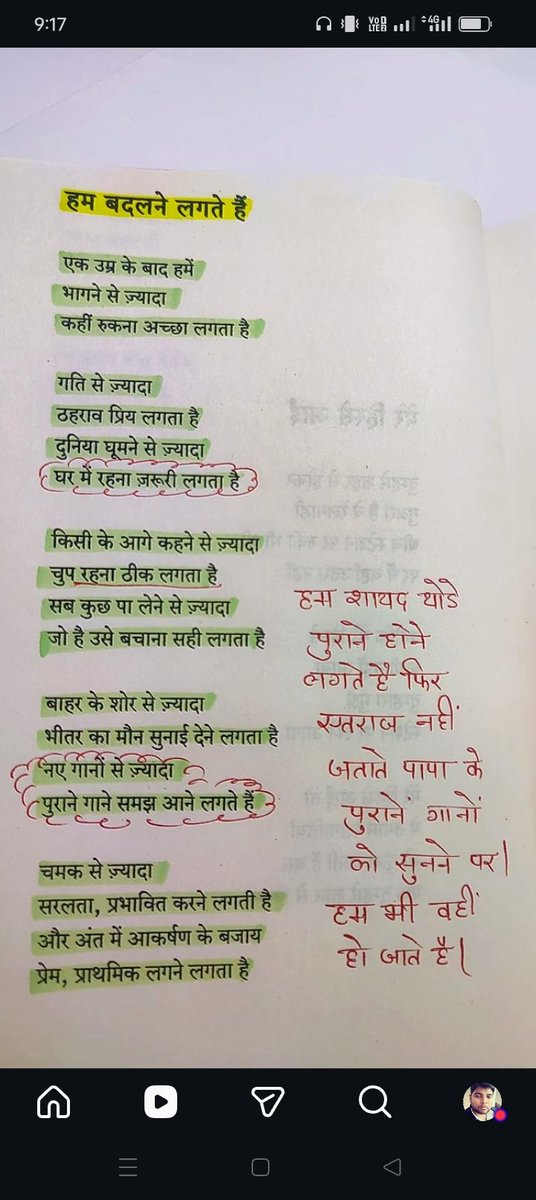 9:17
Vo
LTE 2
4G
हम बदलने लगते हैं
एक उम्र के बाद हमें
भागने से ज़्यादा
कहीं रुकना अच्छा लगता है
गति से ज़्यादा
ठहराव प्रिय लगता है
दुनिया घूमने से ज़्यादा
घर में रहना ज़रूरी लगता है
किसी के आगे कहने से ज़्यादा
चुप रहना ठीक लगता है
सब कुछ पा लेने से ज़्यादा
जो है उसे बचाना सही लगता है
बाहर के शोर से ज़्यादा
भीतर का मौन सुनाई देने लगता है
नए गानों से ज़्यादा
पुराने गाने समझ आने लगते हैं
चमक से ज़्यादा
सरलता, प्रभावित करने लगती है
और अंत में आकर्षण के बजाय
प्रेम, प्राथमिक लगने लगता है
हम शायद थोडे
पुराने होने
लगते है फिर
नहीं
जताते पापा के
पुराने गानों
को सुनने पर।
हम भी वहीं
हो जाते है।